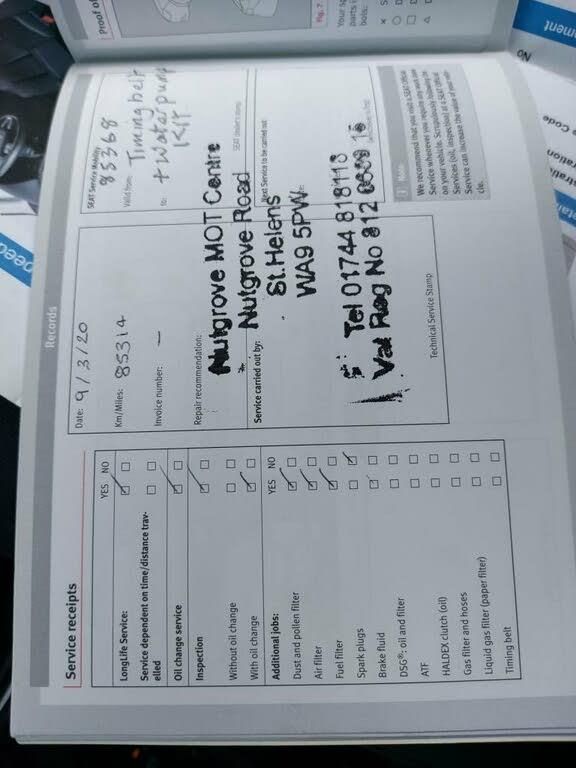 Records
Service receipts
YES NO
LongLife Service:
Service dependent on time/distance trav-
elled
Oil change service
Inspection
Without oil change
With oil change
Additional jobs:
YES NO
Dust and pollen filter
Air filter
Fuel filter
Spark plugs
Brake fluid
DSG®: oil and filter
ATF
HALDEX clutch (oil)
Gas filter and hoses
Liquid gas filter (paper filter)
Timing belt
Date: 9/3/20
Km/Miles: 85314
Invoice number: —
Repair recommendation:
Service carried out by:
Nutgrove MOT Centre
Nutgrove Road
St.Helens
WA9 5PW
Tel 01744 818118
Vat Reg No 812
Technical Service Stamp
SEAT Service Mobility
85368
Valid from: Timing belt
to: + Water pump
KIT
SEAT dealer's stamp
Next Service to be carried out
Note
We recommend that you visit a SEAT Official
Service whenever you require any work done
on your vehicle. Scrupulously following the
Services (oil, inspection) at a SEAT Official
Service can increase the value of your vehi-
cle.
Proof of
Fig. 7
Your
parts
No
Code